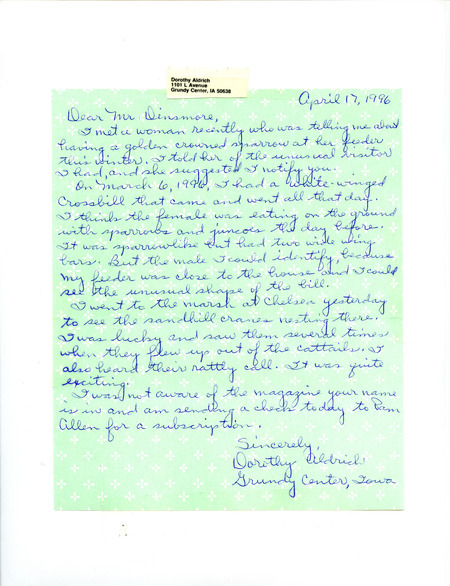 Dorothy Aldrich
1101 L Avenue
Grundy Center, IA 50638
April 17, 1996
Dear Mr. Dinsmore,
I met a woman recently who was telling me about
having a golden crowned sparrow at her feeder
this winter. I told her of the unusual visitor
I had, and she suggested I notify you.
On March 6, 1996, I had a white-winged
Crossbill that came and went all that day.
I think the female was eating on the ground
with sparrows and juncoes the day before.
It was sparrowlike but had two wide wing
bars. But the male I could identify, because
my feeder was close to the house and I could
see the unusual shape of the bill.
I went to the marsh at Chelsea yesterday
to see the sandhill cranes nesting there.
I was lucky and saw them several times
when they flew up out of the cattails. I
also heard their rattly call. It was quite
exciting.
I was not aware of the magazine your name
is in and am sending a check today to Pam
Allen for a subscription.
Sincerely,
Dorothy Aldrich
Grundy Center, Iowa